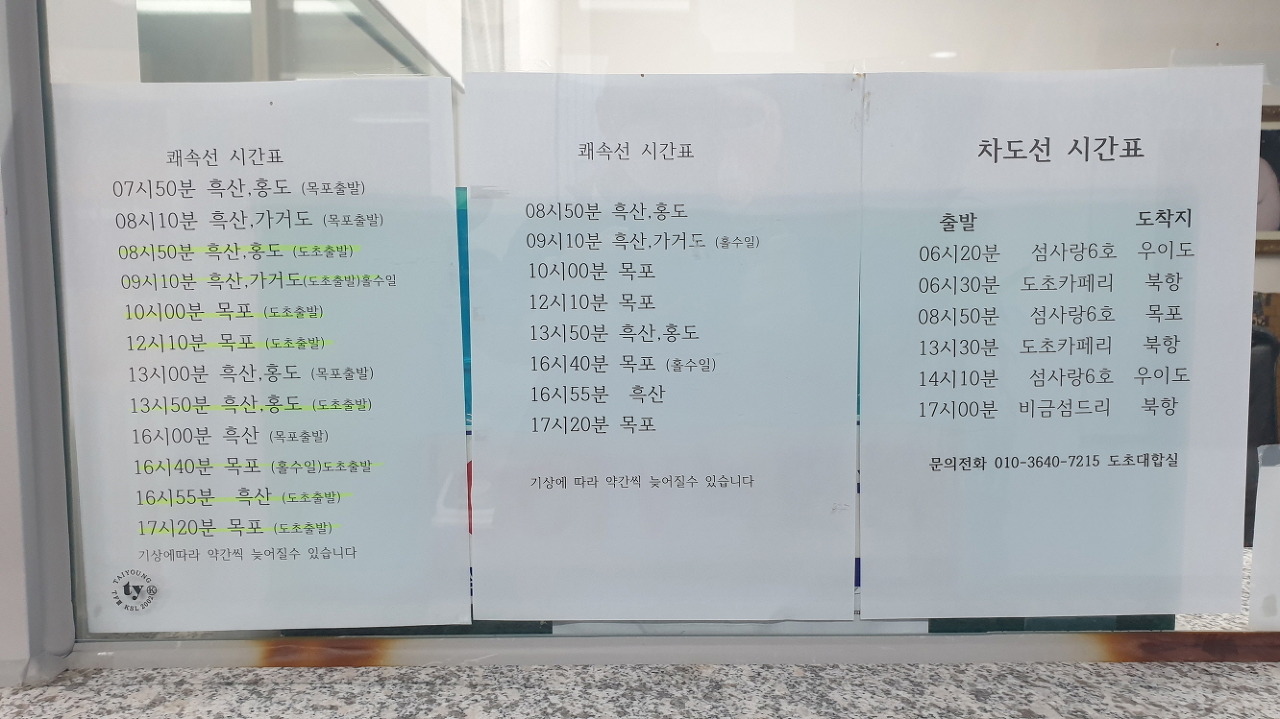 쾌속선 시간표
07시50분 흑산,홍도 (목포출발)
08시10분 흑산,가거도 (목포출발)
08시50분 흑산,홍도 (도초출발)
09시10분 흑산,가거도(도초출발)홀수일
10시00분 목포 (도초출발)
12시10분 목포 (도초출발)
13시00분 흑산,홍도 (목포출발)
13시50분 흑산,홍도 (도초출발)
16시00분 흑산 (목포출발)
16시40분 목포 (홀수일)도초출발
16시55분 흑산 (도초출발)
17시20분 목포 (도초출발)
기상에따라 약간씩 늦어질수 있습니다
TAIYOUNG
ty
쾌속선 시간표
08시50분 흑산,홍도
09시10분 흑산,가거도 (홀수일)
10시00분 목포
12시10분 목포
13시50분 흑산,홍도
16시40분 목포 (홀수일)
16시55분 흑산
17시20분 목포
기상에 따라 약간씩 늦어질수 있습니다
차도선 시간표
출발 도착지
06시20분 섬사랑6호 우이도
06시30분 도초카페리 북항
08시50분 섬사랑6호 목포
13시30분 도초카페리 북항
14시10분 섬사랑6호 우이도
17시00분 비금섬드리 북항
문의전화 010-3640-7215 도초대합실